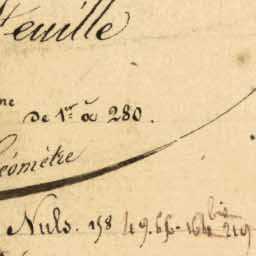 Feuille
me
de 1er à 280.
Géomètre
Nuls. 158 49. 66. 164 bis 219